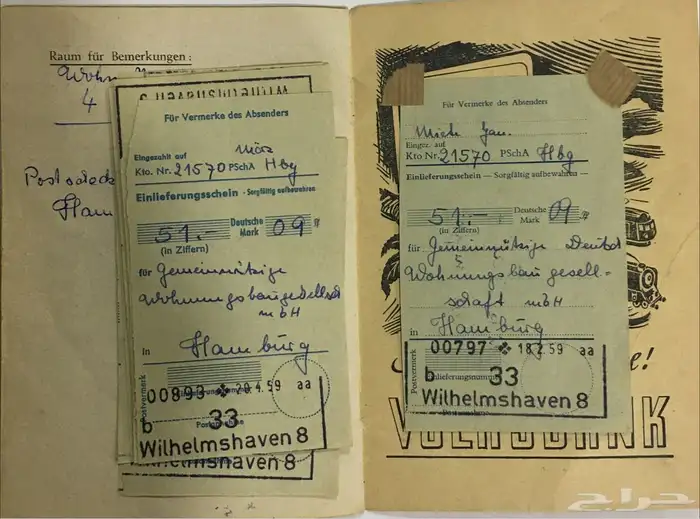 Raum für Bemerkungen:
4
Postscheck
Ham
Für Vermerke des Absenders
März
Eingezahlt auf
Kto. Nr. 21570 PSchA Hbg
Einlieferungsschein - Sorgfältig aufbewahren
51.- Deutsche Mark 09
(in Ziffern)
für Gemeinnützige
Wohnungsbaugesellschaft
mbH
in Hamburg
Postvermerk
00893 20.4.59 aa
Einlieferungsnummer
b 33
Postannahme
Wilhelmshaven 8
Wilhelmshaven 8
Für Vermerke des Absenders
Miete Jan.
Eingez. auf
Kto Nr. 21570 PSchA Hbg
Einlieferungsschein — Sorgfältig aufbewahren —
51.- Deutsche Mark 09
(in Ziffern)
für Gemeinnützige Deutsch
Wohnungsbaugesell=
schaft mbH
in Hamburg
Postvermerk
00797 18.2.59 aa
Einlieferungsnummer
b 33
Postannahme
Wilhelmshaven 8
e!
VOLKSBANK
حراج